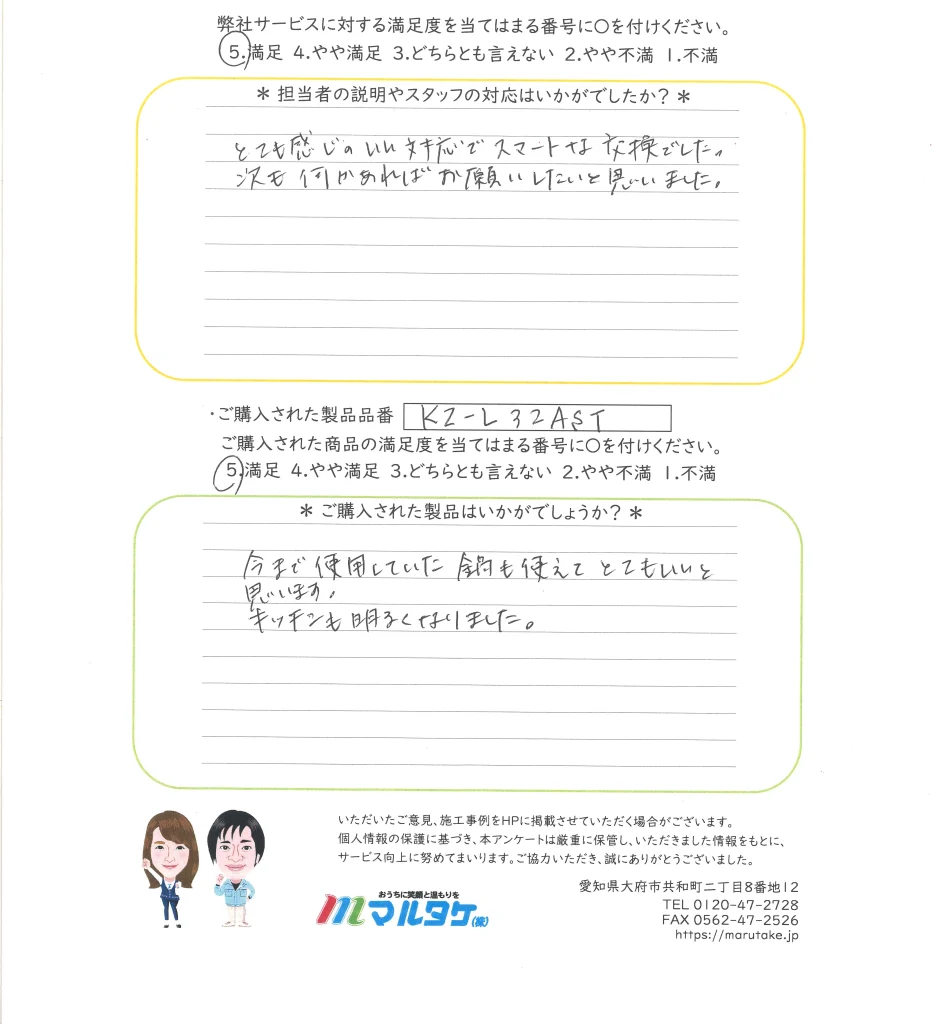 弊社サービスに対する満足度を当てはまる番号に〇を付けください。
5.満足 4.やや満足 3.どちらとも言えない 2.やや不満 1.不満
＊担当者の説明やスタッフの対応はいかがでしたか？＊
とても感じのいい対応でスマートな交換でした。
次も何かあればお願いしたいと思いました。
・ご購入された製品品番 KZ-L32AST
ご購入された商品の満足度を当てはまる番号に〇を付けください。
5.満足 4.やや満足 3.どちらとも言えない 2.やや不満 1.不満
＊ご購入された製品はいかがでしょうか？＊
今まで使用していた鍋も使えてとてもいいと
思います。
キッチンも明るくなりました。
いただいたご意見、施工事例をHPに掲載させていただく場合がございます。
個人情報の保護に基づき、本アンケートは厳重に保管し、いただきました情報をもとに、
サービス向上に努めてまいります。ご協力いただき、誠にありがとうございました。
おうちに笑顔と温もりを
mマルタケ(株)
愛知県大府市共和町二丁目8番地12
TEL 0120-47-2728
FAX 0562-47-2526
https://marutake.jp